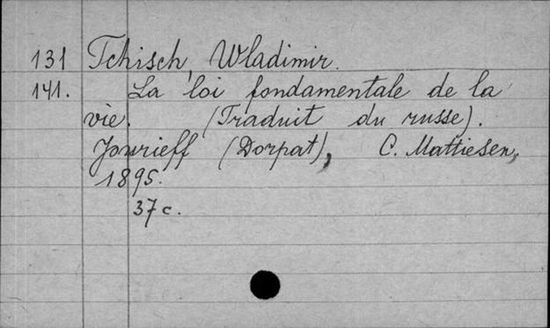 131 Tchisch, Wladimir.
141. La loi fondamentale de la
vie. (Traduit du russe).
Jourieff (Dorpat), C. Mattiesen,
1895.
37 c.